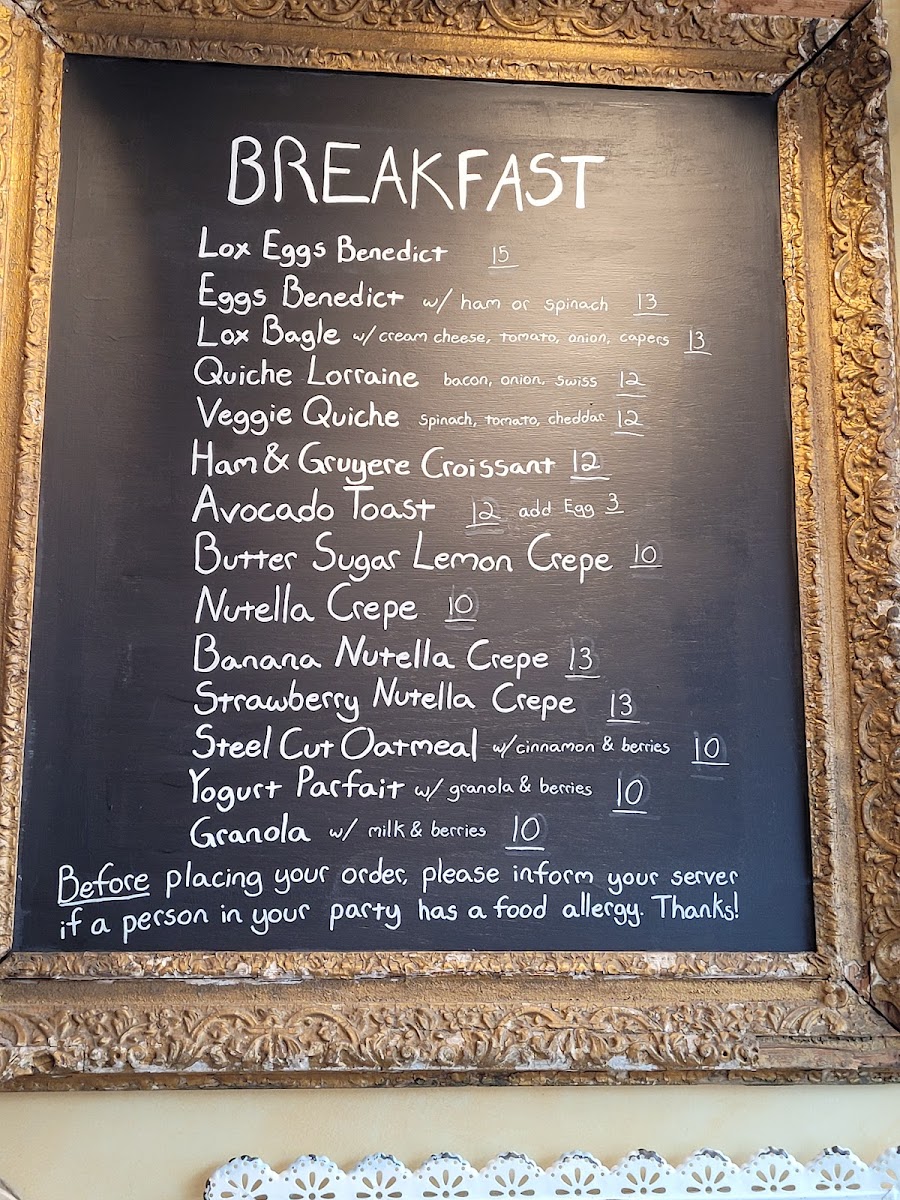 BREAKFAST
Lox Eggs Benedict 15
Eggs Benedict w/ ham or spinach 13
Lox Bagle w/ cream cheese, tomato, onion, capers 13
Quiche Lorraine bacon, onion, swiss 12
Veggie Quiche spinach, tomato, cheddar 12
Ham & Gruyere Croissant 12
Avocado Toast 12 add Egg 3
Butter Sugar Lemon Crepe 10
Nutella Crepe 10
Banana Nutella Crepe 13
Strawberry Nutella Crepe 13
Steel Cut Oatmeal w/cinnamon & berries 10
Yogurt Parfait w/ granola & berries 10
Granola w/ milk & berries 10
Before placing your order, please inform your server
if a person in your party has a food allergy. Thanks!